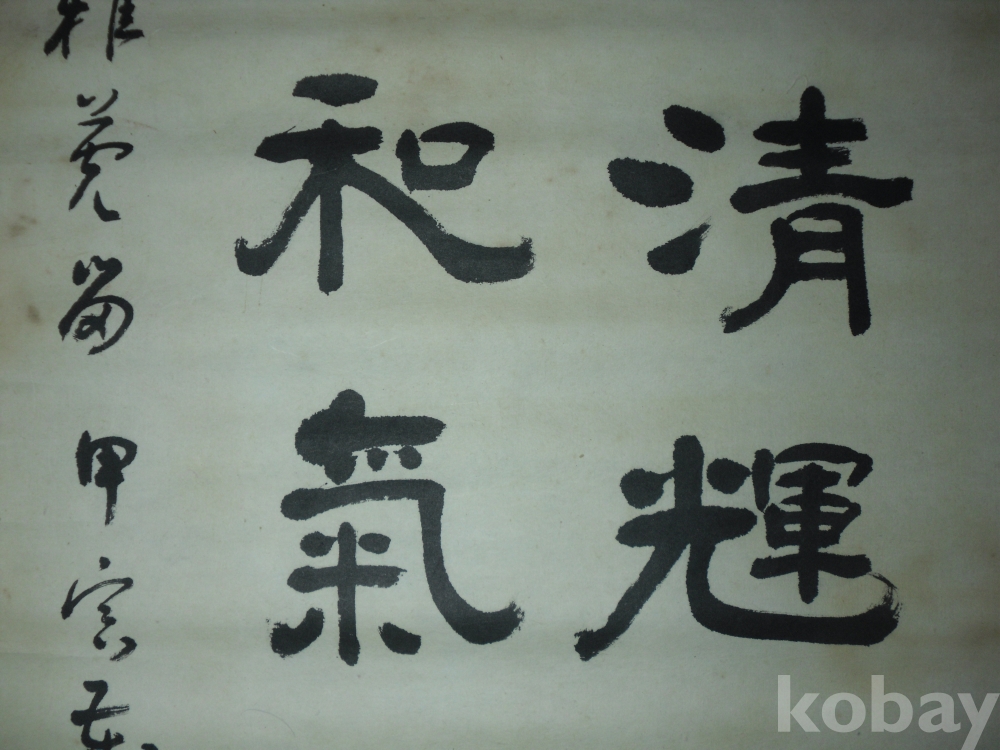 清輝
和氣
雅莞留 甲寅春
kobay